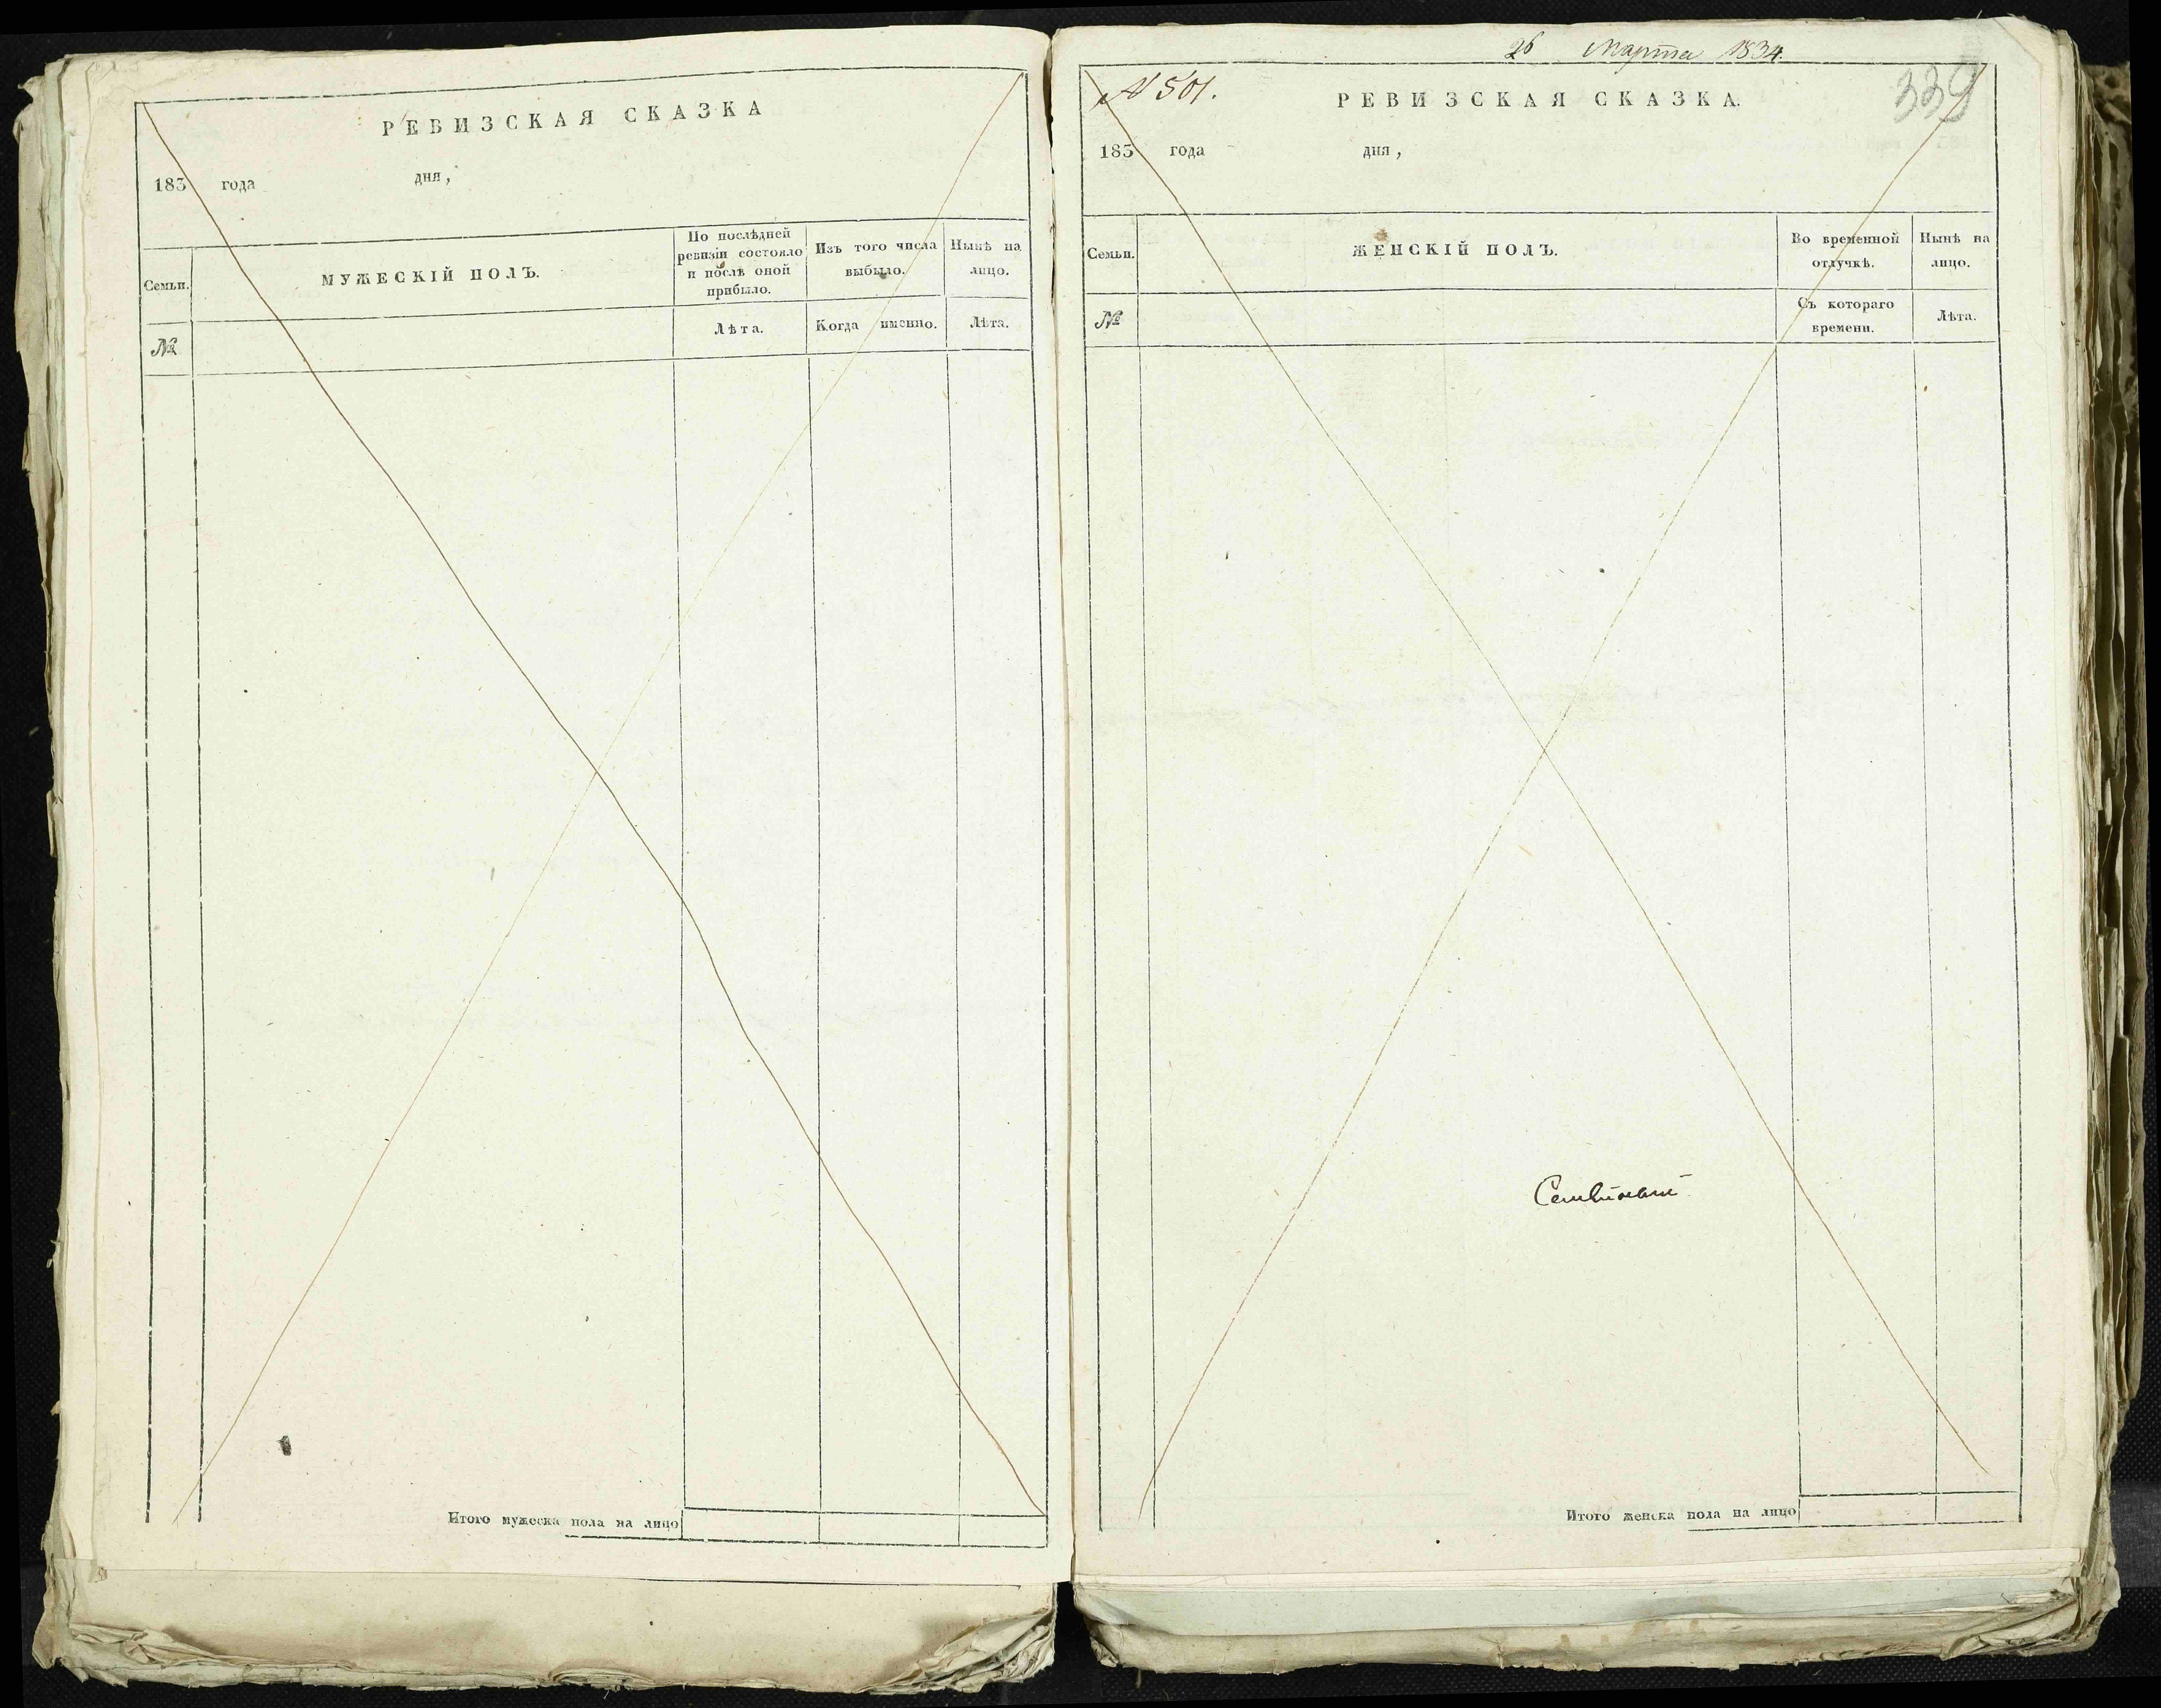 РЕВИЗСКАЯ СКАЗКА
183 года дня,
Семьи.
МУЖЕСКІЙ ПОЛЪ.
По послѣдней ревизіи состояло и послѣ оной прибыло.
Изъ того числа выбыло.
Нынѣ на лицо.
№
Лѣта.
Когда именно.
Лѣта.
Итого мужеска пола на лицо
26 Марта 1834.
№ 501.
339
РЕВИЗСКАЯ СКАЗКА.
183 года дня,
Семьи.
ЖЕНСКІЙ ПОЛЪ.
Во временной отлучкѣ.
Нынѣ на лицо.
№
Съ котораго времени.
Лѣта.
Итого женска пола на лицо